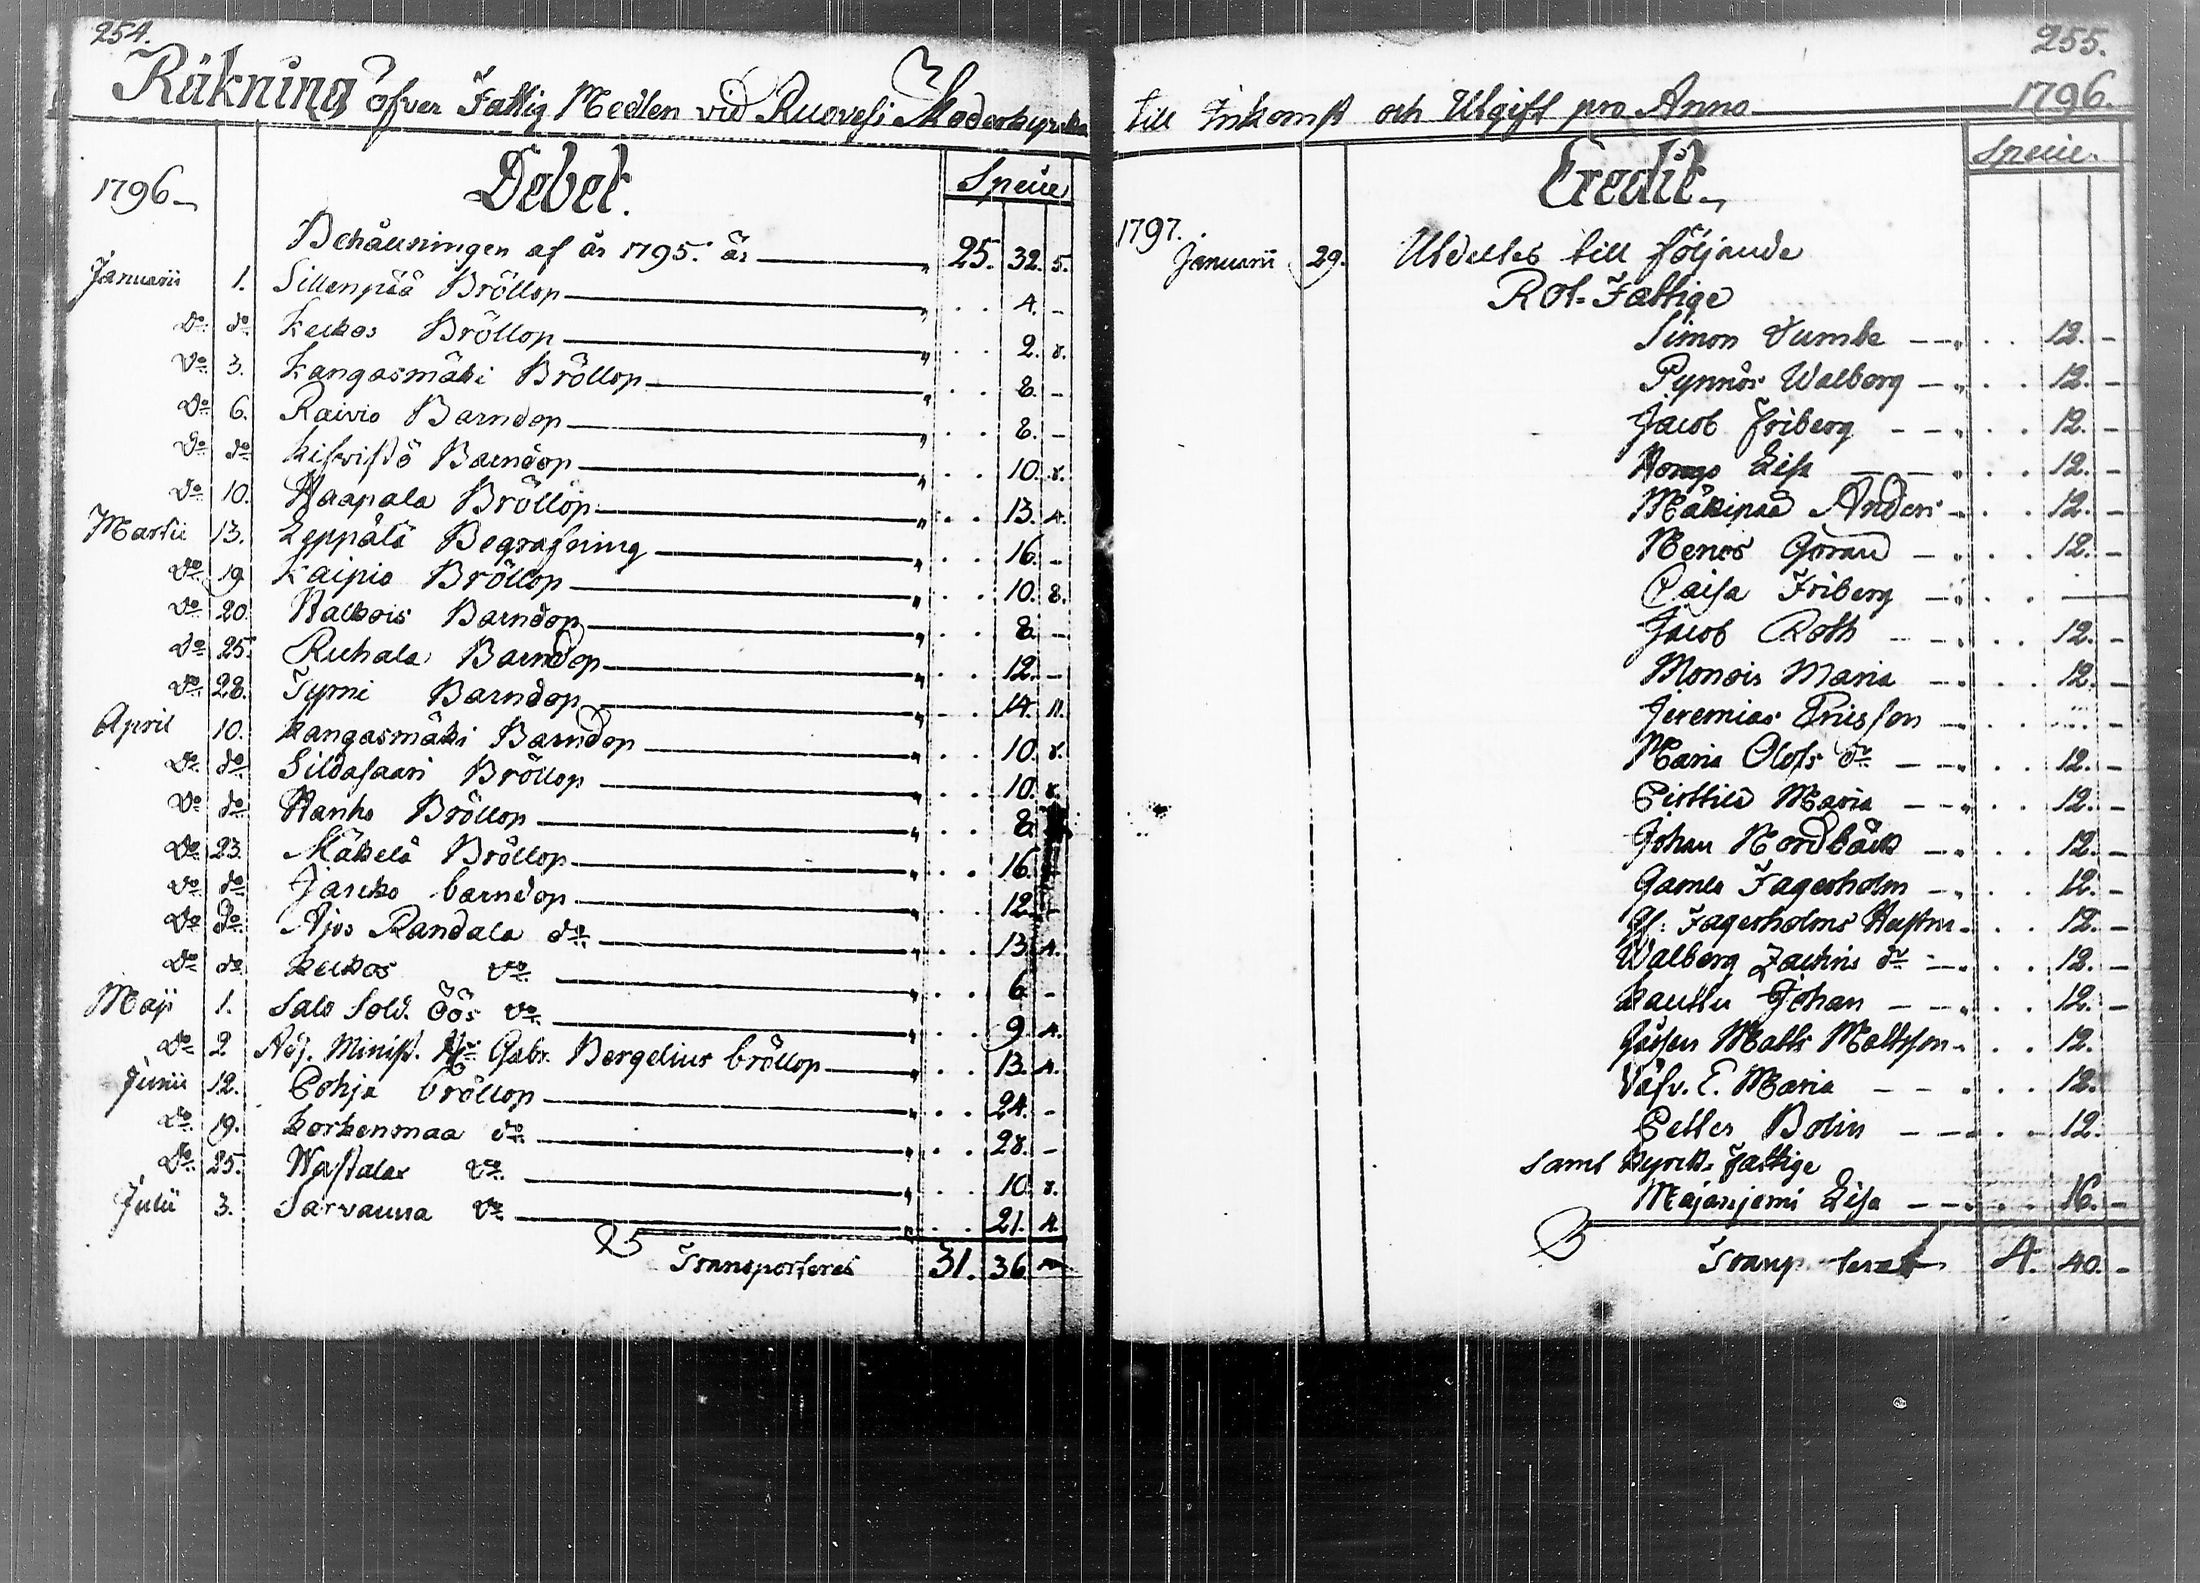 254.
Räkning öfver Fattig Medlen vid Ruovesi Moderkyrka
1796
Debet.
Specie
Behållningen af år 1795. är 25. 32. 5.
Januarii 1. Sillenpää Bröllop 4. -
Do do Keckos Bröllop 2. 8.
Do 3. Kangasmäki Bröllop 8. -
Do 6. Raivio Barndop 8. -
Do do Barndop 10. 8.
Do 10. Haapala Bröllop 13. 4.
Martii 13. Leppälä Begrafning 16. -
Do 19 Kaipio Bröllop 10. 8.
Do 20. Halkois Barndop 8. -
Do 25. Ruhala Barndop 12. -
Do 28. Tyrni Barndop 14. 11.
April 10. Kangasmäki Barndop 10. 8.
Do do Sildasaari Bröllop 10. 8.
Do do Hanho Bröllop 8.
Do 23. Mäkelä Bröllop 16.
Do do Jäncko barndop 12. -
Do do Ajos Randala do 13. 4.
Do do Keckos Do 6 -
Maji 1. Salo Sold. Öös Do 9. 4.
Do 2 Adj. Minist. Hr Gabr. Bergelius bröllop 13. 4.
Junii 12. Pohja bröllop 24. -
Do 19. Korkenmaa do 28. -
Do 25. Wastalax Do 10. 8.
Julii 3. Sarvanna Do 21. 4.
Transporteres 31. 36.
255.
till Inkomst och Utgift pro Anno 1796.
Credit
Specie.
1797.
Januarii 29. Utdeltes till följande
Rot-Fattige
Simon Tumbe 12. -
Pynnös Walborg 12. -
Jacob Friberg 12. -
Lisa 12. -
Mäkipää Anders 12. -
Göran 12. -
Caisa Friberg
Jacob Roth 12. -
Monois Maria 12. -
Jeremias Ericsson
Maria Olofs dr 12. -
Perttilä Maria 12. -
Johan Nordbäck 12. -
Gamla Fagerholm 12. -
Gl: Fagerholms Hustru 12. -
Walborg Zachris dr 12. -
Kauttu Johan 12. -
Matts Mattsson 12.
E. Maria 12.
Petter Bolin 12.
samt Kyrck-Fattige
Majanjemi Lisa 16. -
4. 40. -